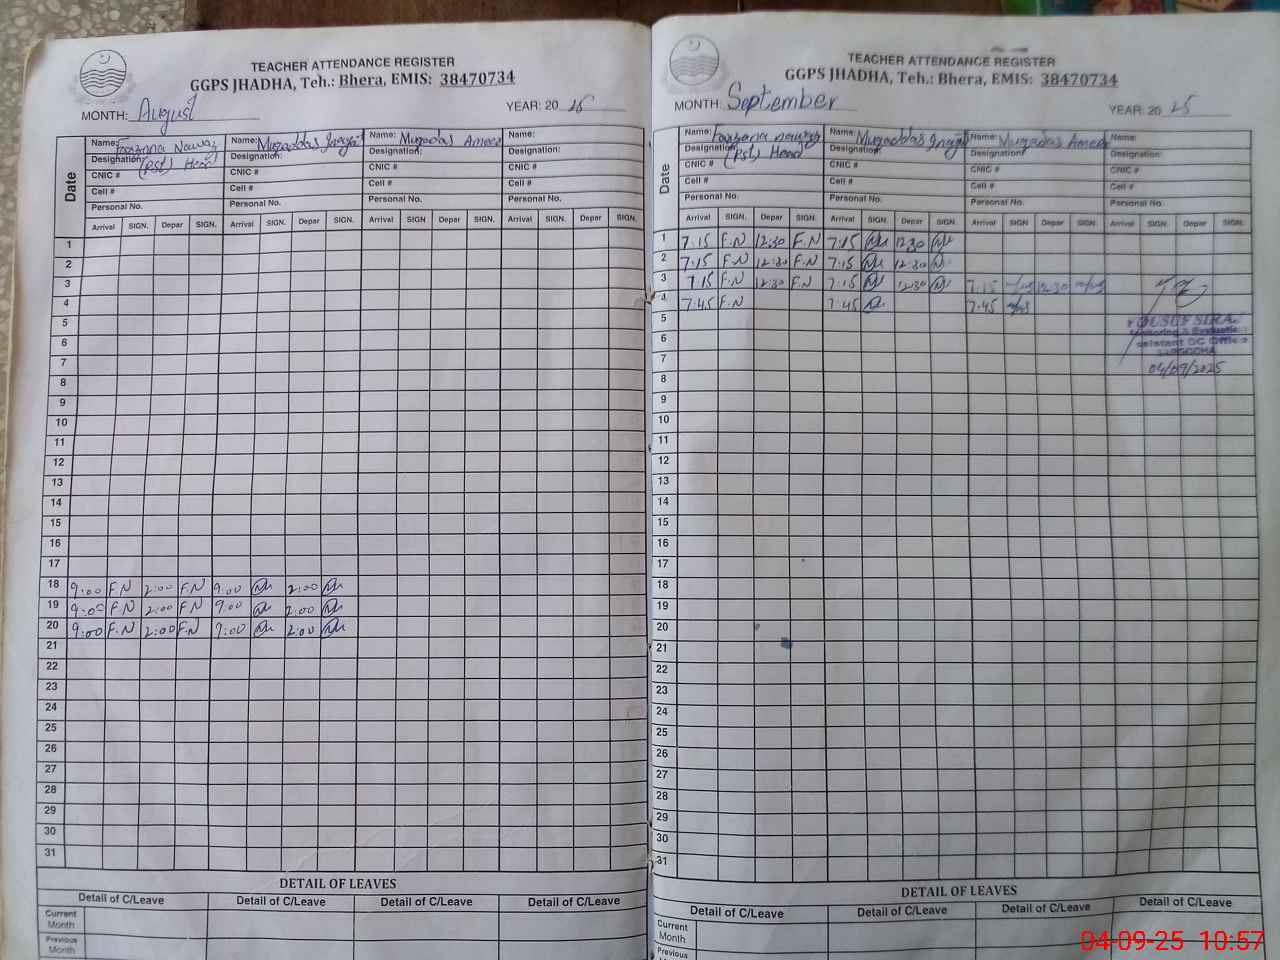 TEACHER ATTENDANCE REGISTER
GGPS JHADHA, Teh.: Bhera, EMIS: 38470734
MONTH: August YEAR: 20 25
Date
Name: Farzana Nawaz Name: Muqaddas Name: Muqadas Ameer Name:
Designation: (PST) Head Designation: Designation: Designation:
CNIC # CNIC # CNIC # CNIC #
Cell # Cell # Cell # Cell #
Personal No. Personal No. Personal No. Personal No.
Arrival SIGN. Depar SIGN. Arrival SIGN. Depar SIGN. Arrival SIGN. Depar SIGN. Arrival SIGN. Depar SIGN.
1
2
3
4
5
6
7
8
9
10
11
12
13
14
15
16
17
18 9:00 F.N 2:00 F.N 9:00 2:00
19 9:00 F.N 2:00 F.N 9:00 2:00
20 9:00 F.N 2:00 F.N 9:00 2:00
21
22
23
24
25
26
27
28
29
30
31
DETAIL OF LEAVES
Detail of C/Leave Detail of C/Leave Detail of C/Leave Detail of C/Leave
Current Month
Previous Month
TEACHER ATTENDANCE REGISTER
GGPS JHADHA, Teh.: Bhera, EMIS: 38470734
MONTH: September YEAR: 20 25
Date
Name: Farzana nawaz Name: Muqaddas Name: Muqadas Ameer Name:
Designation: (PST) Head Designation: Designation: Designation:
CNIC # CNIC # CNIC # CNIC #
Cell # Cell # Cell # Cell #
Personal No. Personal No. Personal No. Personal No.
Arrival SIGN. Depar SIGN. Arrival SIGN. Depar SIGN. Arrival SIGN. Depar SIGN. Arrival SIGN. Depar SIGN.
1 7:15 F.N 12:30 F.N 7:15 12:30
2 7:15 F.N 12:30 F.N 7:15 12:30
3 7:15 F.N 12:30 F.N 7:15 12:30 7:15 12:30
4 7:45 F.N 7:45 7:45
5
6
7
8
9
10
11
12
13
14
15
16
17
18
19
20
21
22
23
24
25
26
27
28
29
30
31
Monitoring & Evaluation
Assistant DC Office
SARGODHA
04/09/2025
DETAIL OF LEAVES
Detail of C/Leave Detail of C/Leave Detail of C/Leave Detail of C/Leave
Current Month
Previous
04-09-25 10:57